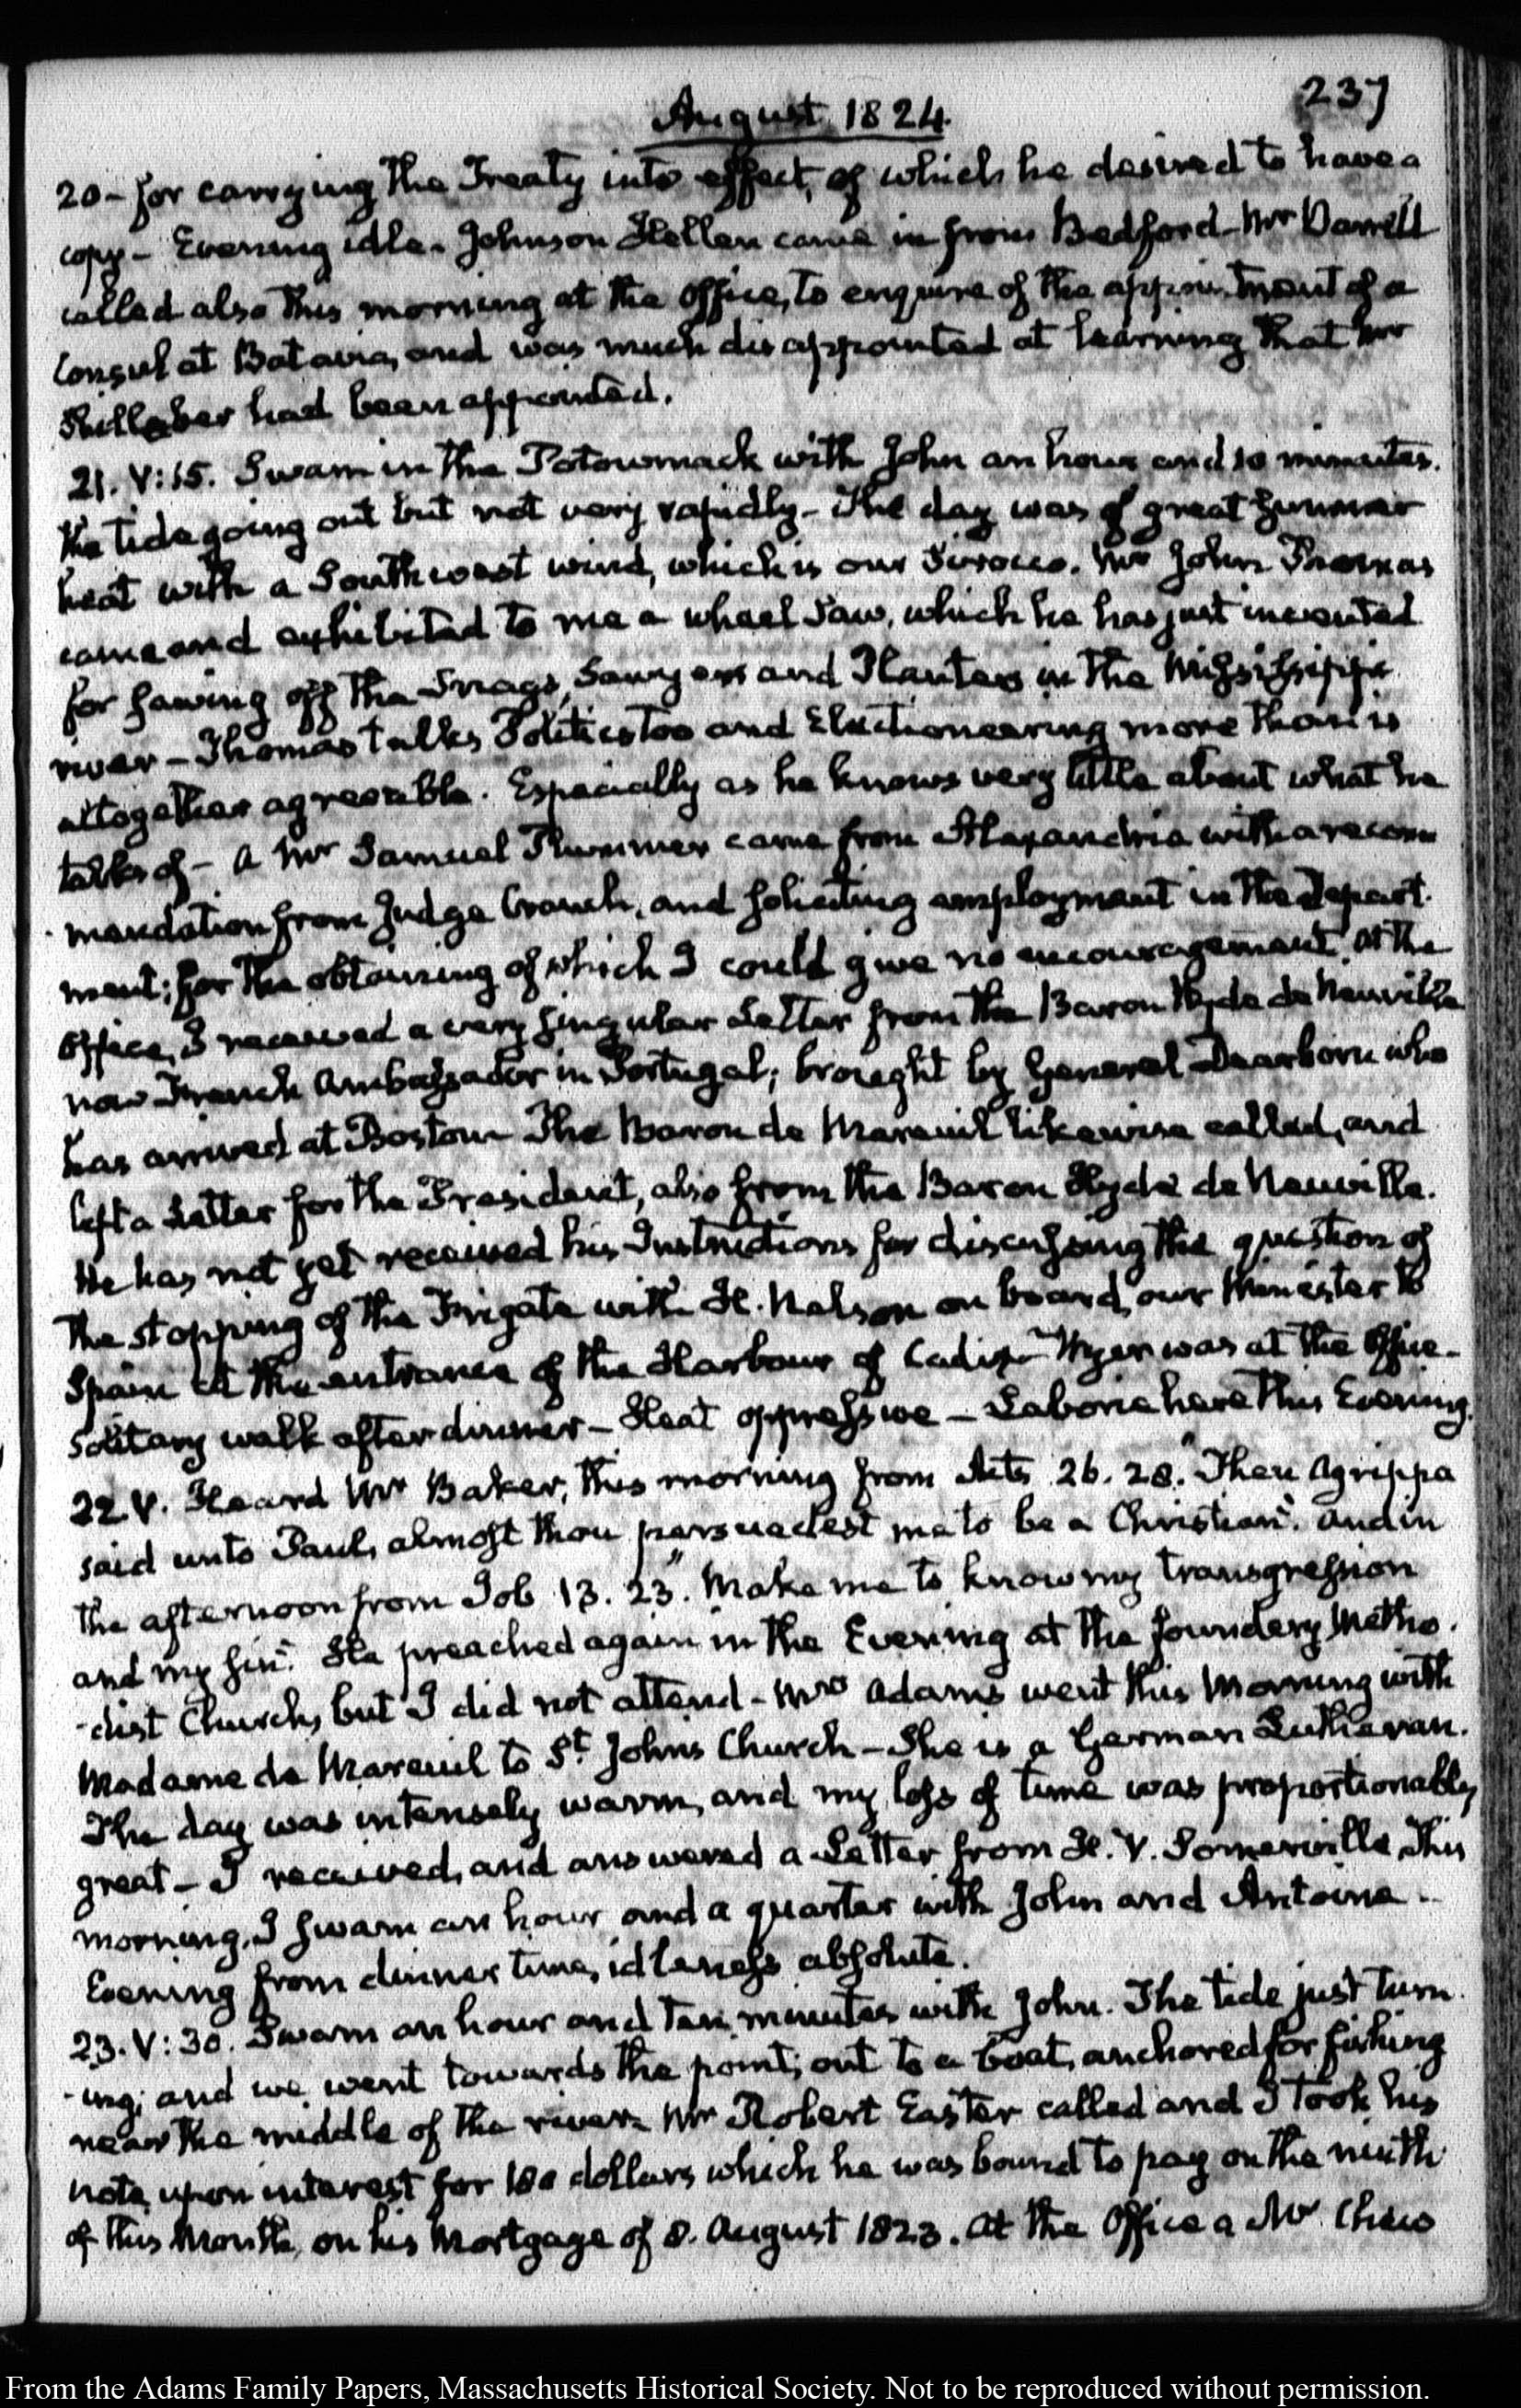 237
August 1824.
20- for carrying the Treaty into effect, of which he desired to have a
copy- Evening idle. Johnson Hellen came in from Bedford- Mr Darrell
called also this morning at the Office, to enquire of the appointment of a
Consul at Batavia, and was much disappointed at learning that Mr
Shillaber had been appointed.
21. V:15. Swam in the Potowmack with John an hour and 10 minutes.
the tide going out but not very rapidly- The day was of great Summer
heat with a Southwest wind, which is our Sirocco. Mr John Thomas
came and exhibited to me a wheel Saw, which he has just invented
for sawing off the Snags, Sawyers and Planters in the Mississippi
river- Thomas talks Politics too and Electioneering more than is
altogether agreeable. Especially as he knows very little about what he
talks of- A Mr Samuel Plummer came from Alexandria with a recom
mendation from Judge Cranch, and soliciting employment in the Depart-
ment; for the obtaining of which I could give no encouragement. At the
Office, I received a very singular Letter from the Baron Hyde de Neuville
now French Ambassador in Portugal; brought by General Dearborn who
has arrived at Boston- The Baron de Mareuil likewise called, and
left a Letter for the President, also from the Baron Hyde de Neuville.
He has not yet received his Instructions for discussing the question of
the stopping of the Frigate with H. Nelson on board, our Minister to
Spain at the entrance of the Harbour of Cadiz- Wyer was at the Office-
Solitary walk after dinner- Heat oppressive- Laborie here this Evening.
22. V. Heard Mr Baker, this morning from Acts 26. 28. "Then Agrippa
said unto Paul, almost thou persuadest me to be a Christian". And in
the afternoon from Job 13. 23. "Make me to know my transgression
and my sin". He preached again in the Evening at the foundery Metho-
-dist Church, but I did not attend- Mrs Adams went this Morning with
Madame de Mareuil to St Johns Church- She is a German Lutheran.
The day was intensely warm, and my loss of time was proportionably
great- I received, and answered a Letter from H. V. Somerville, This
morning, I swam an hour and a quarter with John and Antoine-
Evening from dinner time, idleness absolute.
23. V:30. Swam an hour and ten minutes with John. The tide just turn
-ing; and we went towards the point; out to a boat, anchored for fishing
near the middle of the river- Mr Robert Easter called and I took his
note, upon interest for 180 dollars which he was bound to pay on the ninth
of this Month, on his Mortgage of 8. August 1823. At the Office a Mr Chew
From the Adams Family Papers, Massachusetts Historical Society. Not to be reproduced without permission.